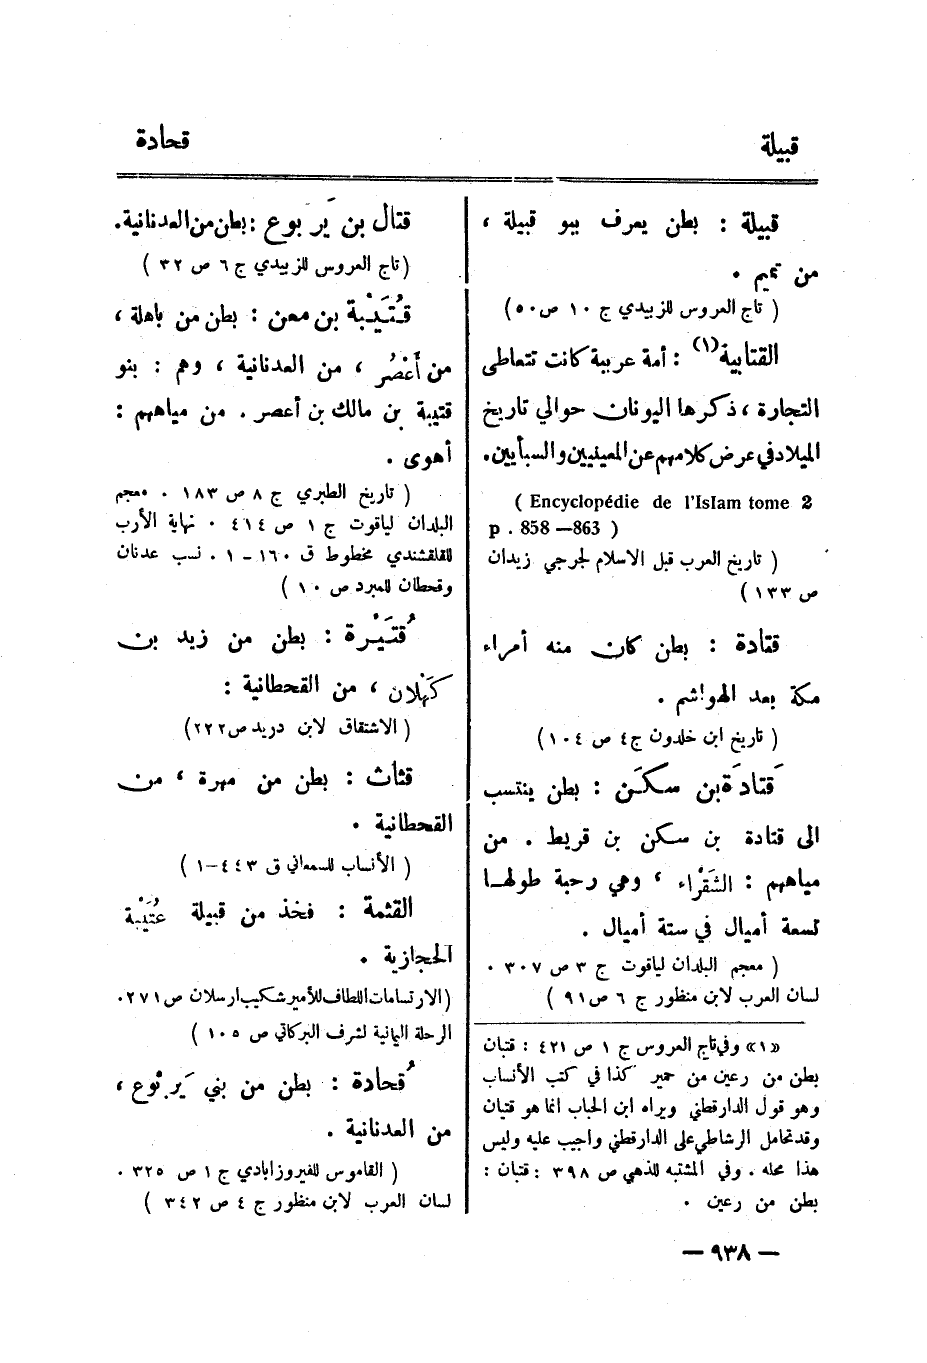 قبيلة
قحادة
قبيلة : بطن يعرف ببو قبيلة ،
من تميم .
( تاج العروس للزبيدي ج ١٠ ص ٥٠)
القتابية(١) : أمة عربية كانت تتعاطى
التجارة ، ذكرها اليونان حوالي تاريخ
الميلاد في عرض كلامهم عن المعينيين والسبأيين.
( Encyclopédie de l'Islam tome 2
p . 858 —863 )
( تاريخ العرب قبل الاسلام لجرجي زيدان
ص ١٣٣ )
قتادة : بطن كان منه أمراء
مكة بعد الهواشم .
( تاريخ ابن خلدون ج٤ ص ١٠٤)
قَتادَة بن سكَن : بطن ينتسب
الى قتادة بن سكن بن قريط . من
مياههم : الشَقْراء ، وهي رحبة طولها
تسعة أميال في ستة أميال .
( معجم البلدان لياقوت ج ٣ ص ٣٠٧ .
لسان العرب لابن منظور ج ٦ ص ٩١ )
«١» وفي تاج العروس ج ١ ص ٤٢١ : قتبان
بطن من رعين من حمير كذا في كتب الأنساب
وهو قول الدارقطني ويراه ابن الحباب انما هو قتيان
وقد تحامل الرشاطي على الدارقطني واجيب عليه وليس
هذا محله . وفي المشتبه للذهي ص ٣٩٨ : قتبان :
بطن من رعين .
قتال بن يَرْبوع : بطن من العدنانية.
(تاج العروس للزبيدي ج ٦ ص ٣٢ )
قُتَيْبة بن معن : بطن من باهلة ،
من أَعْصُر ، من العدنانية ، وهم : بنو
قتيبة بن مالك بن أعصر . من مياههم :
أهوى .
( تاريخ الطبري ج ٨ ص ١٨٣ . معجم
البلدان لياقوت ج ١ ص ٤١٤ . نهاية الأرب
للقلقشندي مخطوط ق ١٦٠ - ١ . نسب عدنان
وقحطان للمبرد ص ١٠ )
قُتَيْرة : بطن من زيد بن
كَهْلان ، من القحطانية :
( الاشتقاق لابن دريد ص٢٢٢)
قثاث : بطن من مهرة ، من
القحطانية .
( الأنساب للسمعاني ق ٤٤٣-١ )
القثمة : فخذ من قبيلة عُتَيْبة
الحجازية .
(الارتسامات اللطاف للأمير شكيب ارسلان ص ٢٧١.
الرحلة اليمانية لشرف البركاتي ص ١٠٥ )
قُحادة : بطن من بني يَرْبوع ،
من العدنانية .
( القاموس للفيروزابادي ج ١ ص ٣٢٥ .
لسان العرب لابن منظور ج ٤ ص ٣٤٢ )
— ٩٣٨ —